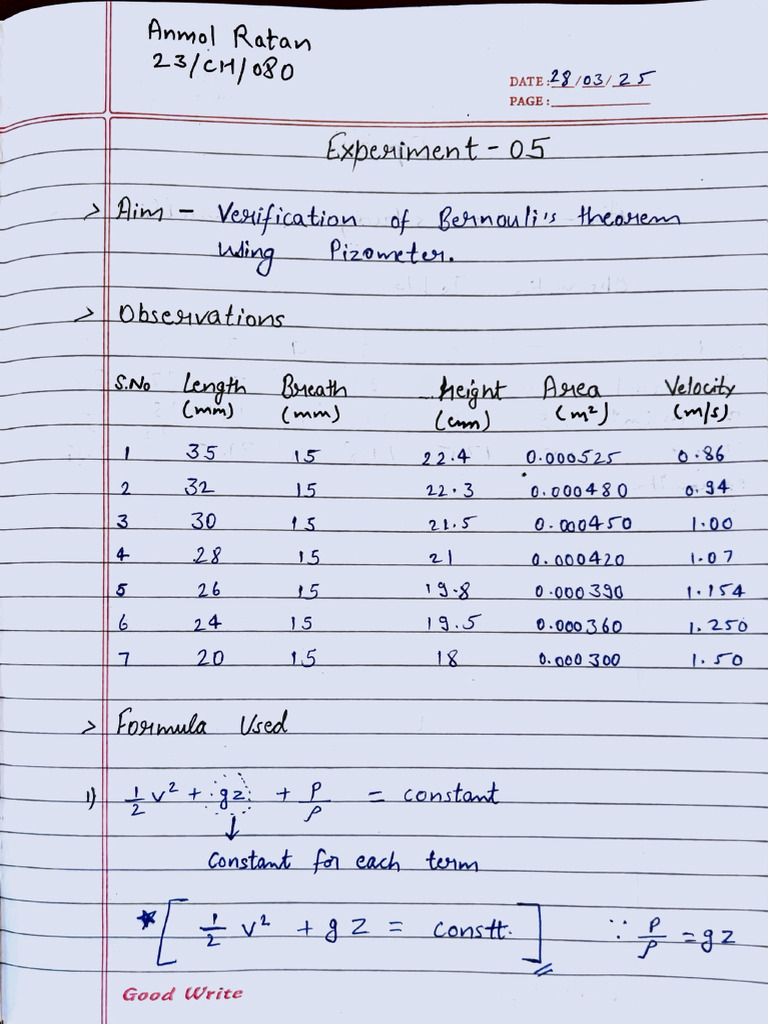 Anmol Ratan
23/CH/080
DATE: 28/03/25
PAGE:
Experiment - 05
> Aim - Verification of Bernouli's theorem
using Pizometer.
> Observations
S.No Length Breath Height Area Velocity
(mm) (mm) (cm) (m²) (m/s)
1 35 15 22.4 0.000525 0.86
2 32 15 22.3 0.000480 0.94
3 30 15 21.5 0.000450 1.00
4 28 15 21 0.000420 1.07
5 26 15 19.8 0.000390 1.154
6 24 15 19.5 0.000360 1.250
7 20 15 18 0.000300 1.50
> Formula Used
1) 1/2 v² + gz + P/ρ = constant
↓
Constant for each term
* [ 1/2 v² + g Z = constt. ] ∵ P/ρ = gz
Good Write